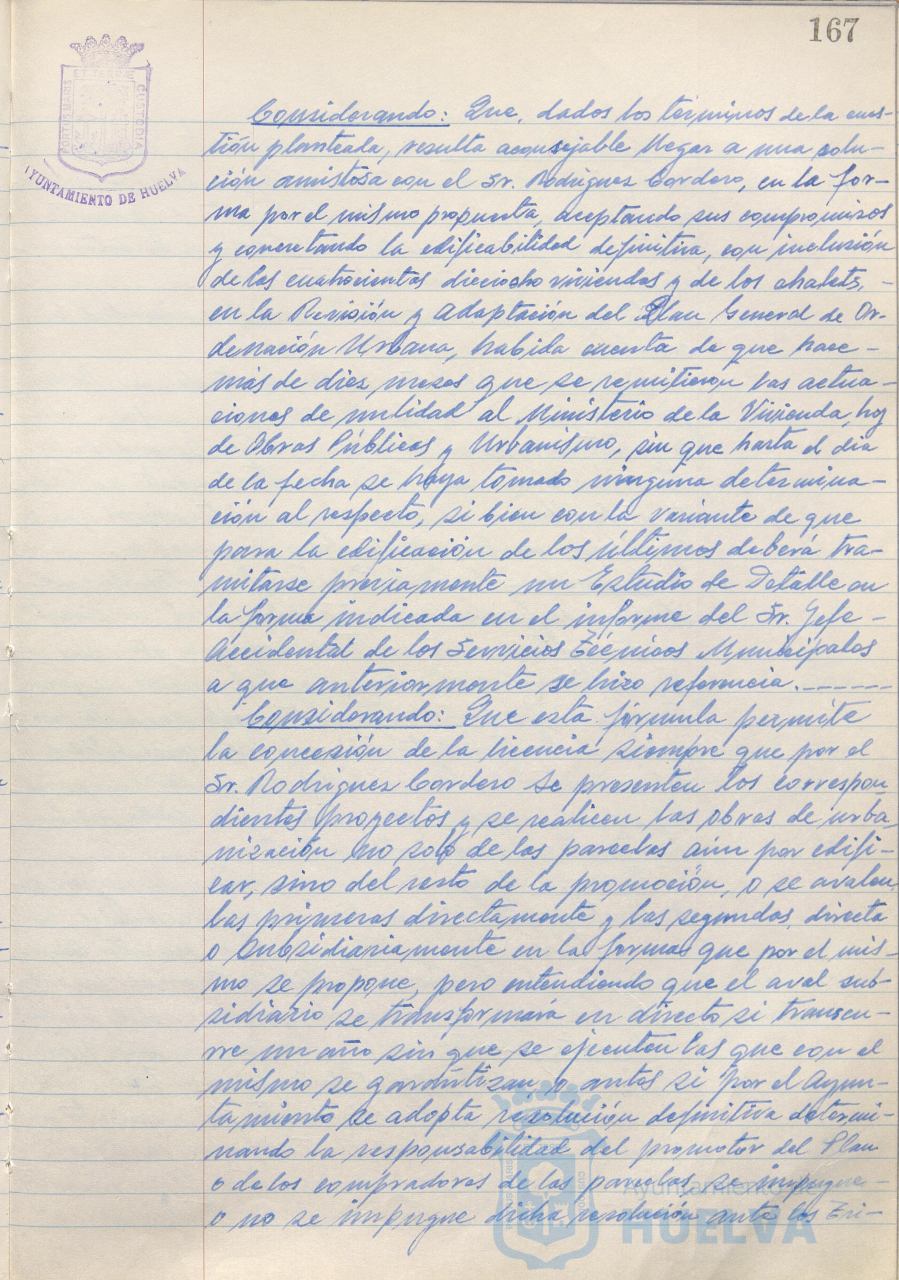 167
PORTUS MARIS ET TERRAE CUSTODIA
AYUNTAMIENTO DE HUELVA
Considerando: Que, dados los términos de la cues-
tión planteada, resulta aconsejable llegar a una solu-
ción amistosa con el Sr. Rodríguez Cordero, en la for-
ma por el mismo propuesta, aceptando sus compromisos
y concretando la edificabilidad definitiva, con inclusión
de las cuatrocientas dieciocho viviendas y de los chalets, -
en la Revisión y adaptación del Plan General de Or-
denación Urbana, habida cuenta de que hace -
más de diez meses que se remitieron las actua-
ciones de nulidad al Ministerio de la Vivienda, hoy
de Obras Públicas y Urbanismo, sin que hasta el día
de la fecha se haya tomado ninguna determina-
ción al respecto, si bien con la variante de que
para la edificación de los últimos deberá tra-
mitarse previamente un Estudio de Detalle en
la forma indicada en el informe del Sr. Jefe -
Accidental de los Servicios Técnicos Municipales
a que anteriormente se hizo referencia.------
Considerando: Que esta fórmula permite
la concesión de la licencia siempre que por el
Sr. Rodríguez Cordero se presenten los correspon-
dientes proyectos y se realicen las obras de urba-
nización no solo de las parcelas aún por edifi-
car, sino del resto de la promoción, o se avalen
las primeras directamente y las segundas, directa
o subsidiariamente en la formas que por el mis-
mo se propone, pero entendiendo que el aval sub-
sidiario se transformará en directo si transcu-
rre un año sin que se ejecuten las que con el
mismo se garantizan, o antes si por el Ayun-
tamiento se adopta resolución definitiva determi-
nando la responsabilidad del promotor del Plan
o de los compradores de las parcelas, se impugne -
o no se impugne dicha resolución ante los Tri-
Ayuntamiento de
HUELVA